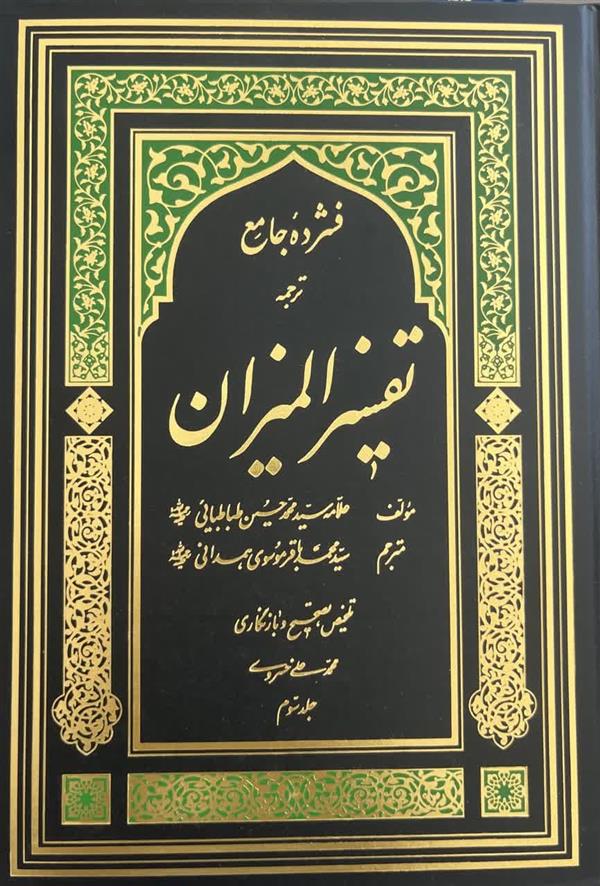 فشردهٔ جامع
ترجمه
تفسیر المیزان
مؤلف علامه سید محمد حسین طباطبائی
مترجم سید محمد باقر موسوی همدانی
تلخیص تصحیح و بازنگاری
محمد علی خسروی
جلد سوم